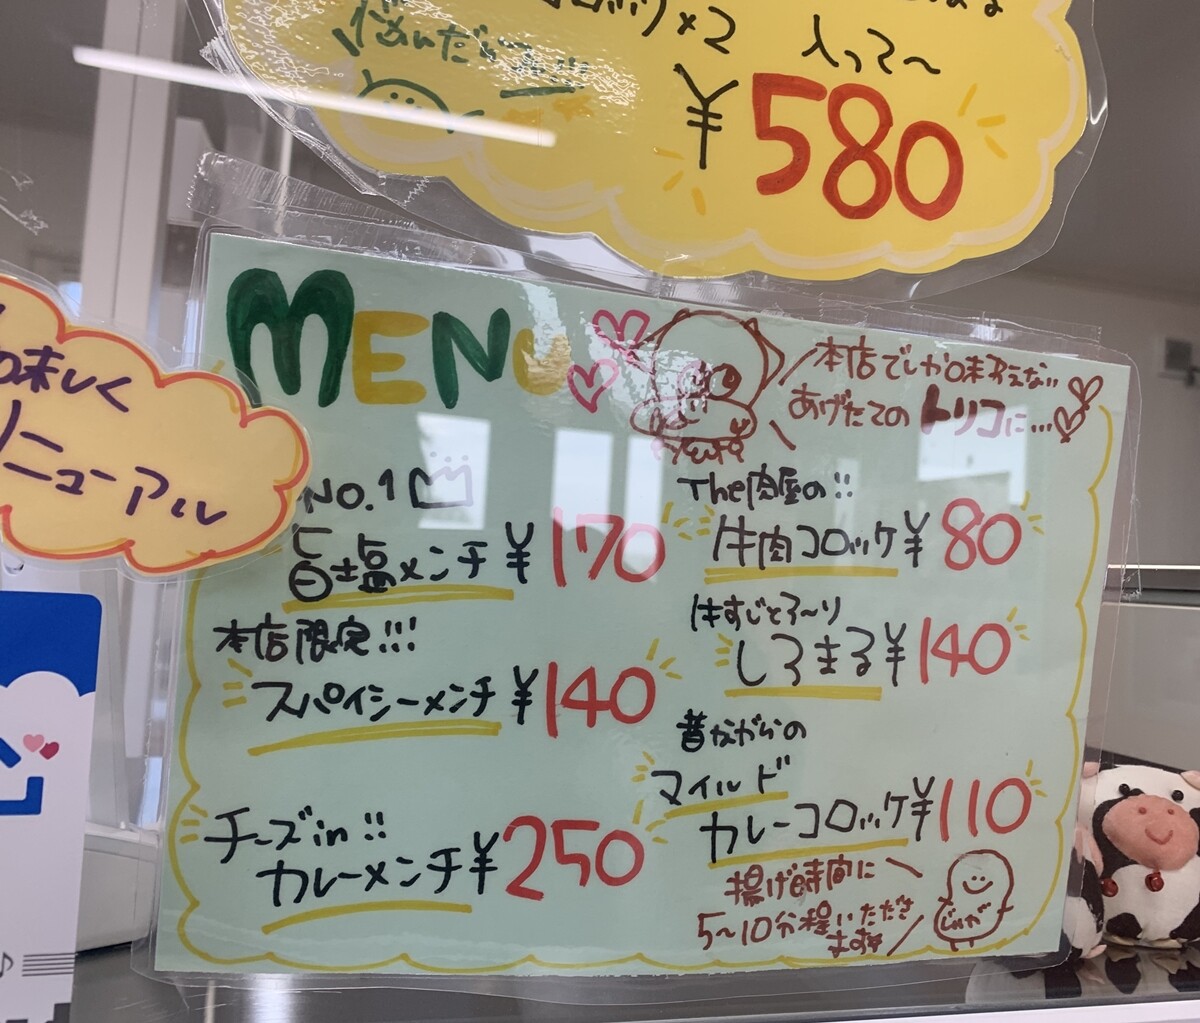 ×2 入って〜
¥580
味しく
リニューアル
MENU
本店でしか味わえない
あげたてのトリコに...
NO.1
旨塩メンチ ¥170
本店限定!!!
スパイシーメンチ ¥140
チーズin!!
カレーメンチ ¥250
The肉屋の!!
牛肉コロッケ ¥80
牛すじとろ〜り
しろまる ¥140
昔ながらの
マイルド
カレーコロッケ ¥110
揚げ時間に
5〜10分程いただき
ます
じゃが